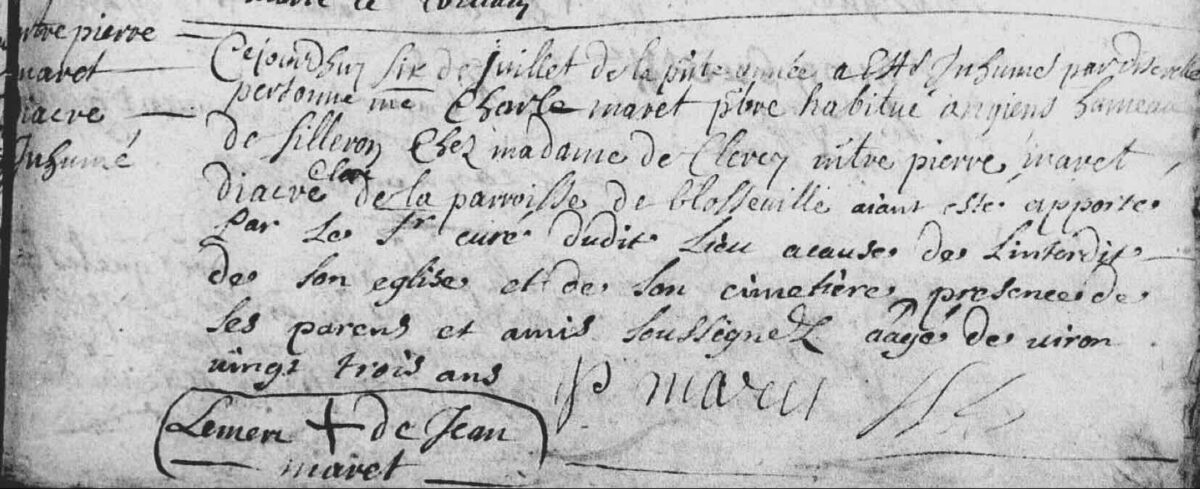 mtre pierre
maret
diacre
Inhumé
Cejourdhuy six de Juillet de la pnte année a Esté Inhumé par discrette
personne me Charle maret pbre habitué angiens hameau
de silleron Chez madame de Clercy mtre pierre maret
diacre Clerc de la parroisse de blosseuille aiant esté apporté
par Le sr curé dudit Lieu acause de Linterdit
de son eglise et de son cimetière presence de
ses parens et amis soussignez aagé de uiron
uingt trois ans P maret
Lemerc + de Jean
maret